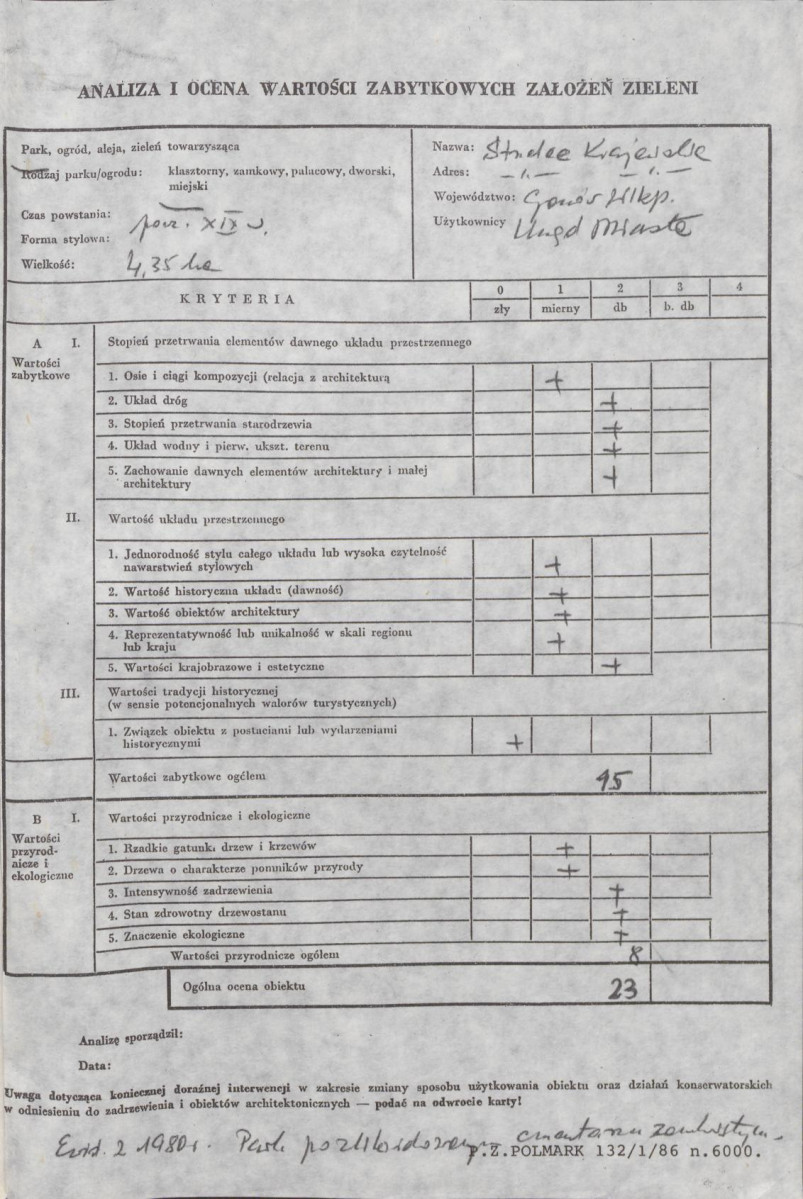 ANALIZA I OCENA WARTOŚCI ZABYTKOWYCH ZAŁOŻEŃ ZIELENI
Park, ogród, aleja, zieleń towarzysząca
Rodzaj parku/ogrodu: klasztorny, zamkowy, pałacowy, dworski, miejski
Czas powstania: pocz. XIX w.
Forma stylowa:
Wielkość: 4,35 ha
Nazwa: Strzelce Krajeńskie
Adres: — „ — — „ —
Województwo: Gorzów Wlkp.
Użytkownicy Urząd Miasta
KRYTERIA
0 1 2 3 4
zły mierny db b. db
A I. Stopień przetrwania elementów dawnego układu przestrzennego
Wartości zabytkowe
1. Osie i ciągi kompozycji (relacja z architekturą +
2. Układ dróg +
3. Stopień przetrwania starodrzewia +
4. Układ wodny i pierw. ukszt. terenu +
5. Zachowanie dawnych elementów architektury i małej
architektury +
II. Wartość układu przestrzennego
1. Jednorodność stylu całego układu lub wysoka czytelność
nawarstwień stylowych +
2. Wartość historyczna układu (dawność) +
3. Wartość obiektów architektury +
4. Reprezentatywność lub unikalność w skali regionu
lub kraju +
5. Wartości krajobrazowe i estetyczne +
III. Wartości tradycji historycznej
(w sensie potencjonalnych walorów turystycznych)
1. Związek obiektu z postaciami lub wydarzeniami
historycznymi +
Wartości zabytkowe ogółem 15
B I. Wartości przyrodnicze i ekologiczne
Wartości
przyrod-
nicze i
ekologiczne
1. Rzadkie gatunki drzew i krzewów +
2. Drzewa o charakterze pomników przyrody +
3. Intensywność zadrzewienia +
4. Stan zdrowotny drzewostanu +
5. Znaczenie ekologiczne +
Wartości przyrodnicze ogółem 8
Ogólna ocena obiektu 23
Analizę sporządził:
Data:
Uwaga dotycząca koniecznej doraźnej interwencji w zakresie zmiany sposobu użytkowania obiektu oraz działań konserwatorskich
w odniesieniu do zadrzewienia i obiektów architektonicznych — podać na odwrocie karty!
Ewid. z 1980 r. Park po zlikwidowanym cmentarzu
P.Z.POLMARK 132/1/86 n.6000.